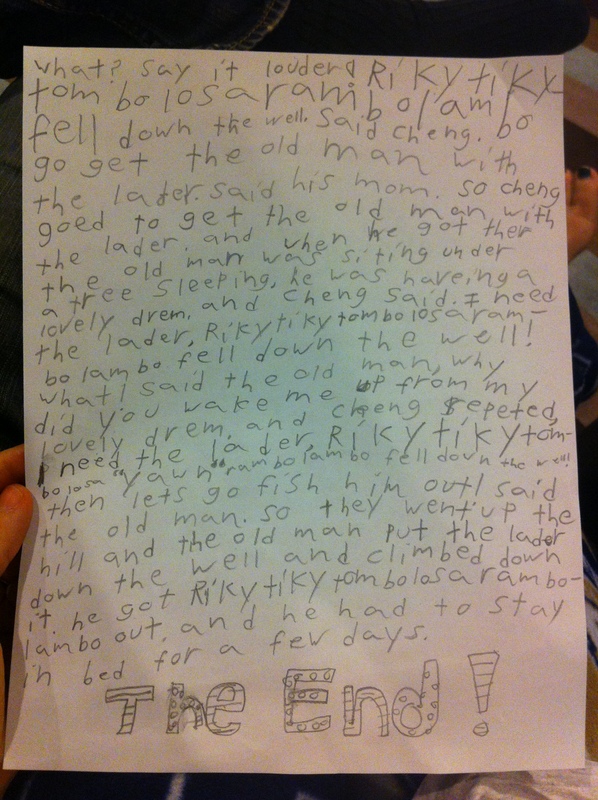 what? say it louder! Rikytiky-
tom bo losarambolambo
fell down the well. Said cheng. bo
go get the old man with
the lader. said his mom. so cheng
goed to get the old man with
the lader. and when he got ther
the old man was siting under
a tree sleeping, he was haveing a
lovely drem. and cheng said. I need
the lader, Rikytikytombolosaram-
bolambo fell down the well!
what! said the old man, why
did you wake me up from my
lovely drem, and cheng repeted,
I need the lader, Rikytikytom-
bolosa rambolambo fell down the well!
yawn
then lets go fish him out! said
the old man. so they went up the
hill and the old man put the lader
down the well and climbed down
it. he got Rikytikytombolosarambo-
lambo out, and he had to stay
in bed for a few days.
The End!